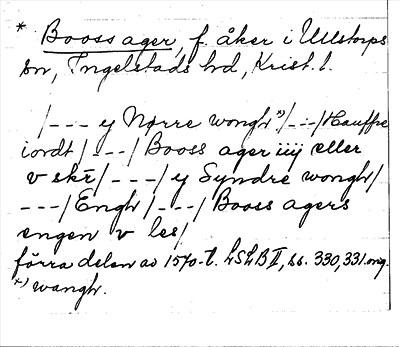 * Booss ager, f. åker i Ullstorps
sn, Ingelstads hd, Krist. l.
/--- y Nørre wongh *)/---/Hauffre
iordt/---/Booss ager iiij eller
v skr̄/---/y Syndre wongh/
---/Engh/---/Booss agers
engen v les/
förra delen av 1570-t. LSLB II, ss. 330, 331. org.
*) wangh.